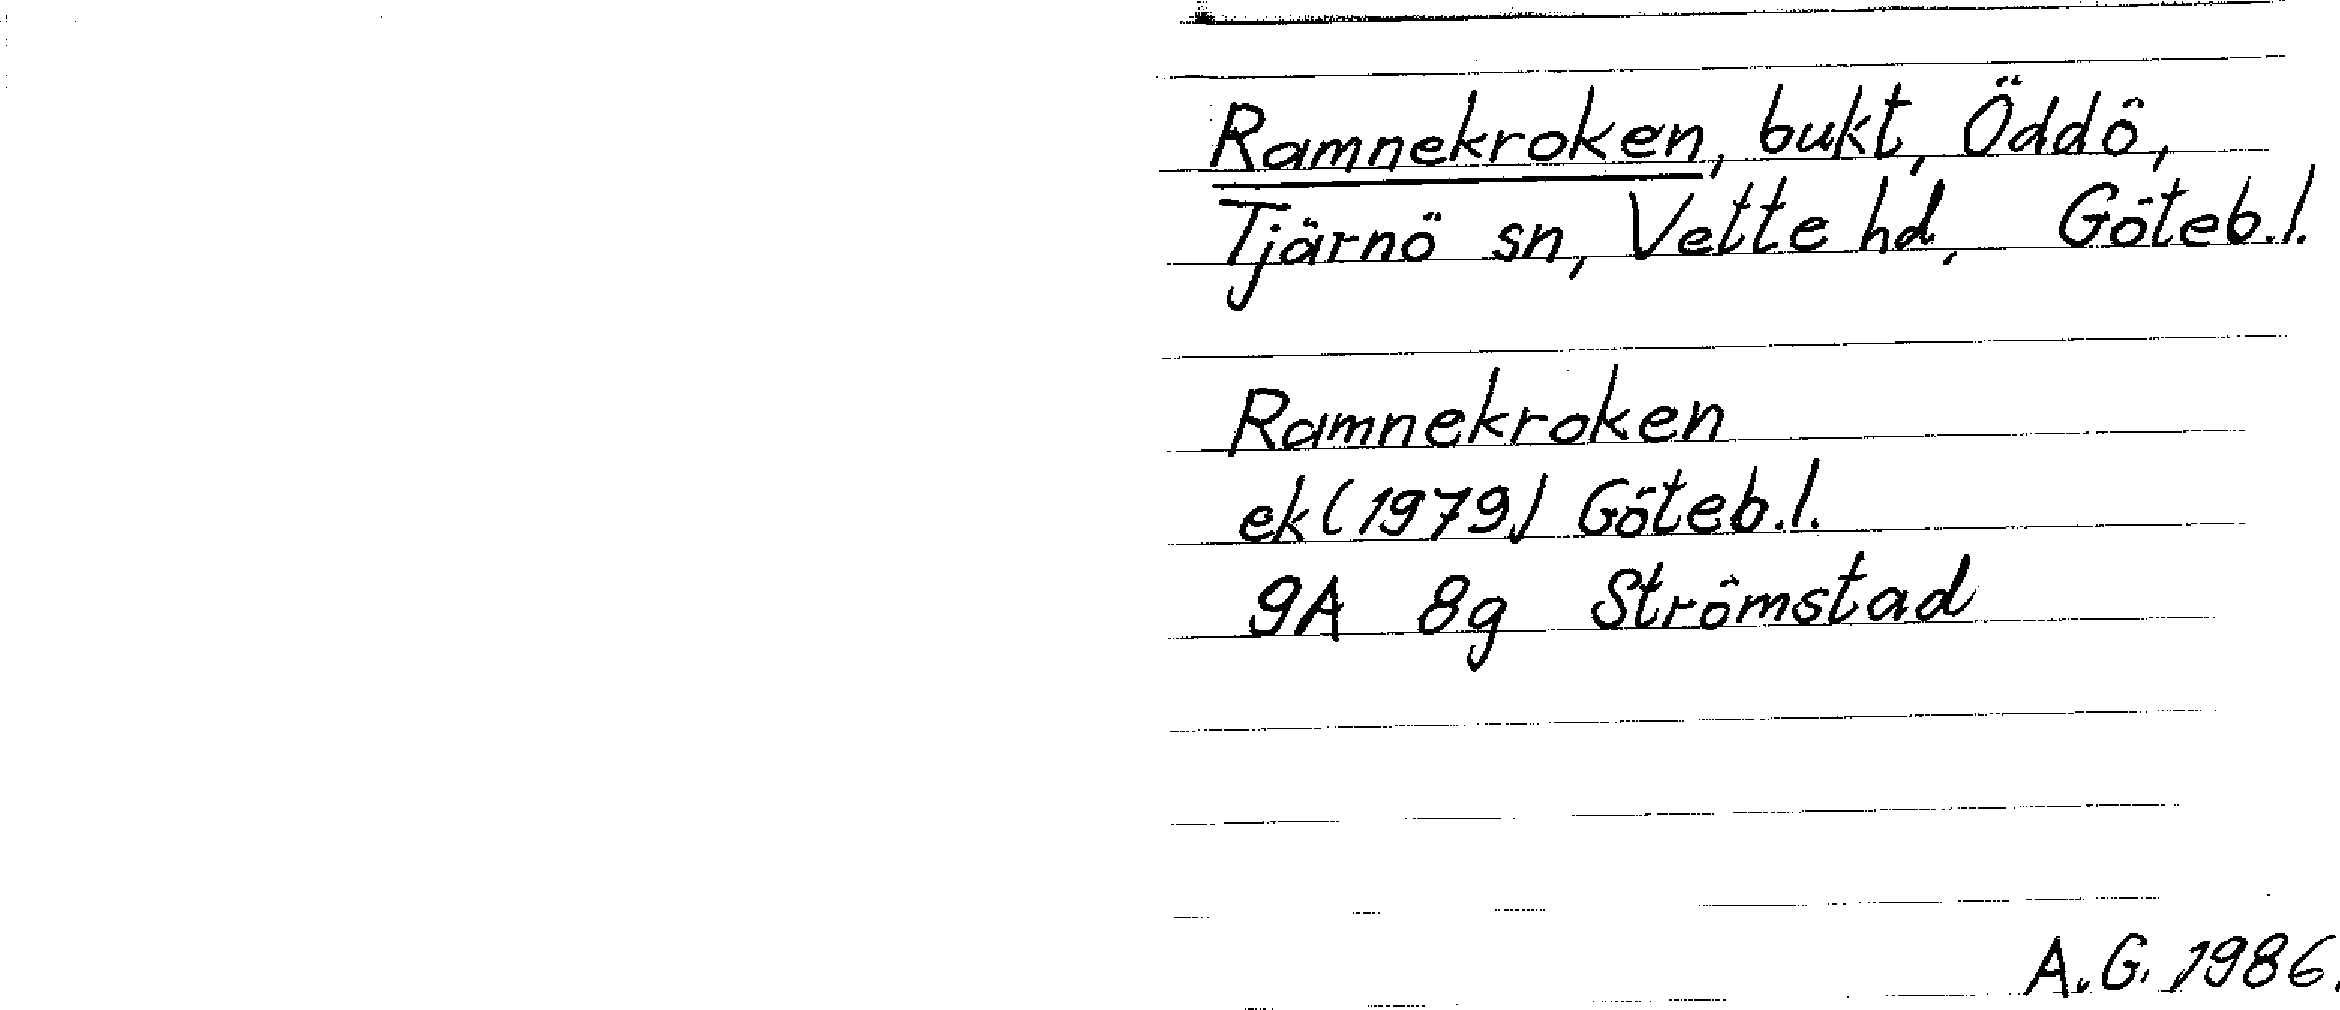 Ramnekroken, bukt, Öddö,
Tjärnö sn, Vette hd, Göteb.l.
Ramnekroken
ek (1979) Göteb.l.
9A 8g Strömstad
A.G. 1986.